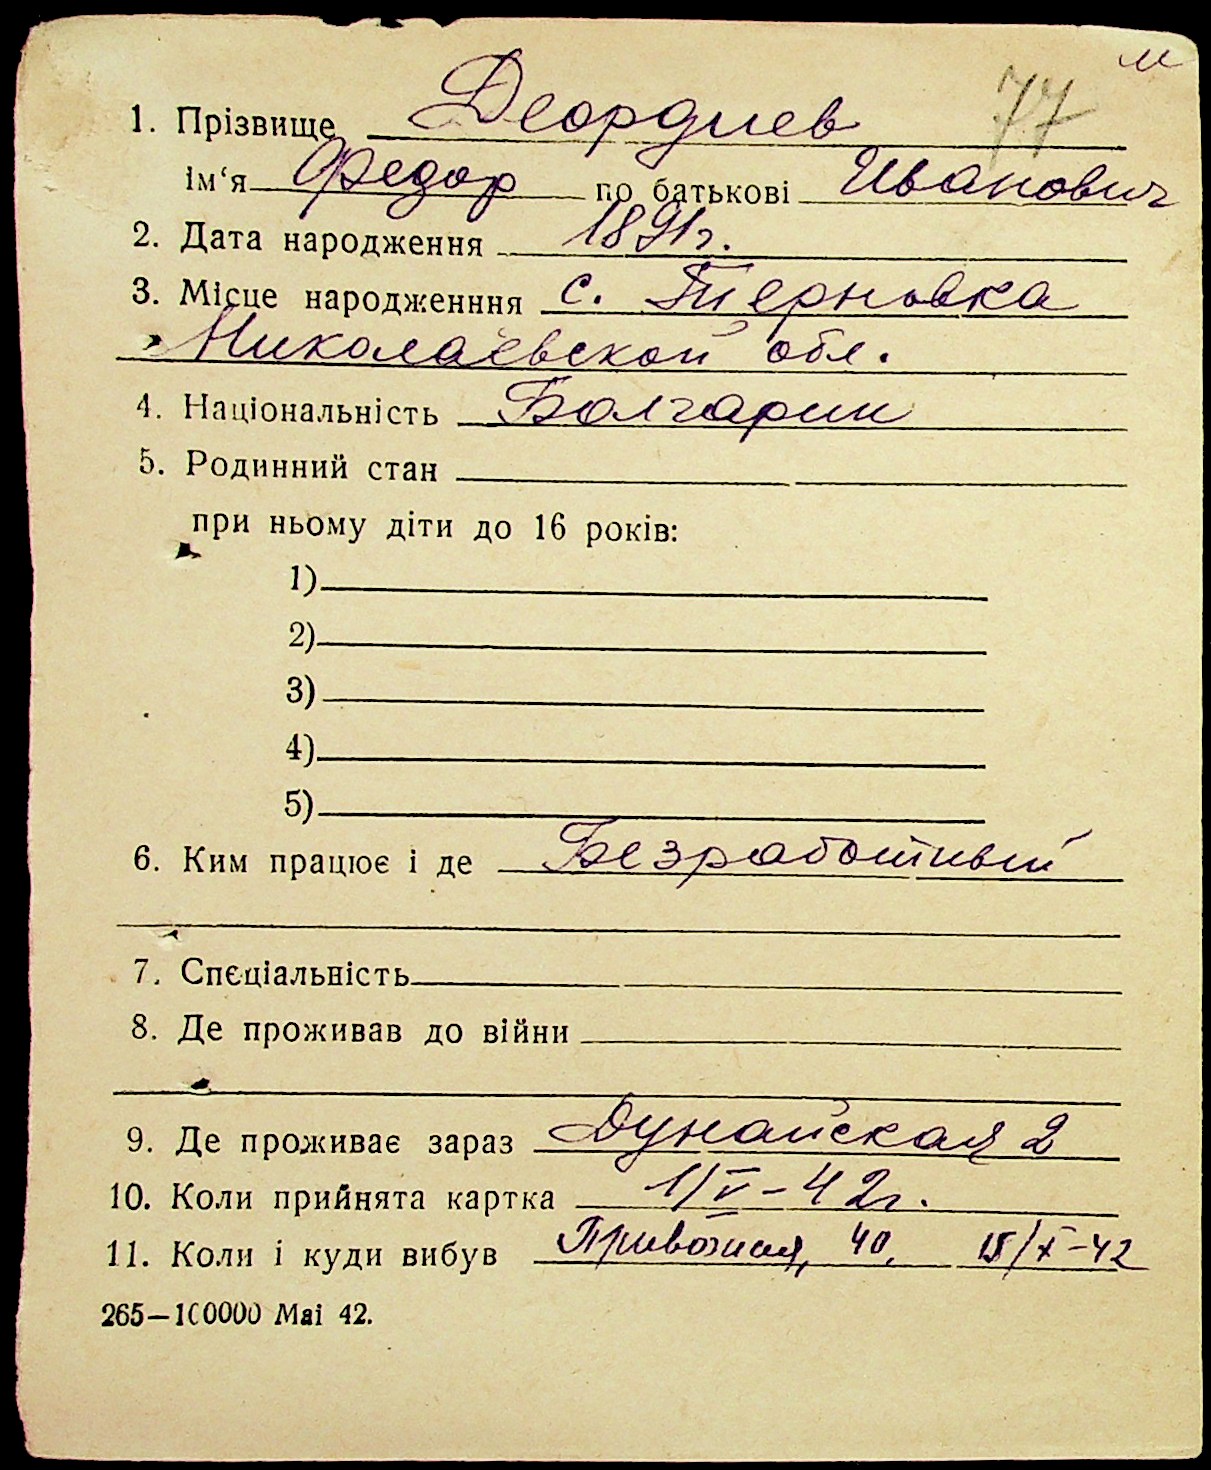 м
77
1. Прізвище Деордиев
ім‘я Федор по батькові Иванович
2. Дата народження 1891г.
3. Місце народженння с. Терновка
Николаевской обл.
4. Національність Болгарин
5. Родинний стан
при ньому діти до 16 років:
1)
2)
3)
4)
5)
6. Ким працює і де Безработный
7. Спєціальність
8. Де проживав до війни
9. Де проживає зараз Дунайская 2
10. Коли прийнята картка 1/V-42г.
11. Коли і куди вибув Привозная, 40. 15/X-42
265—100000 Mai 42.